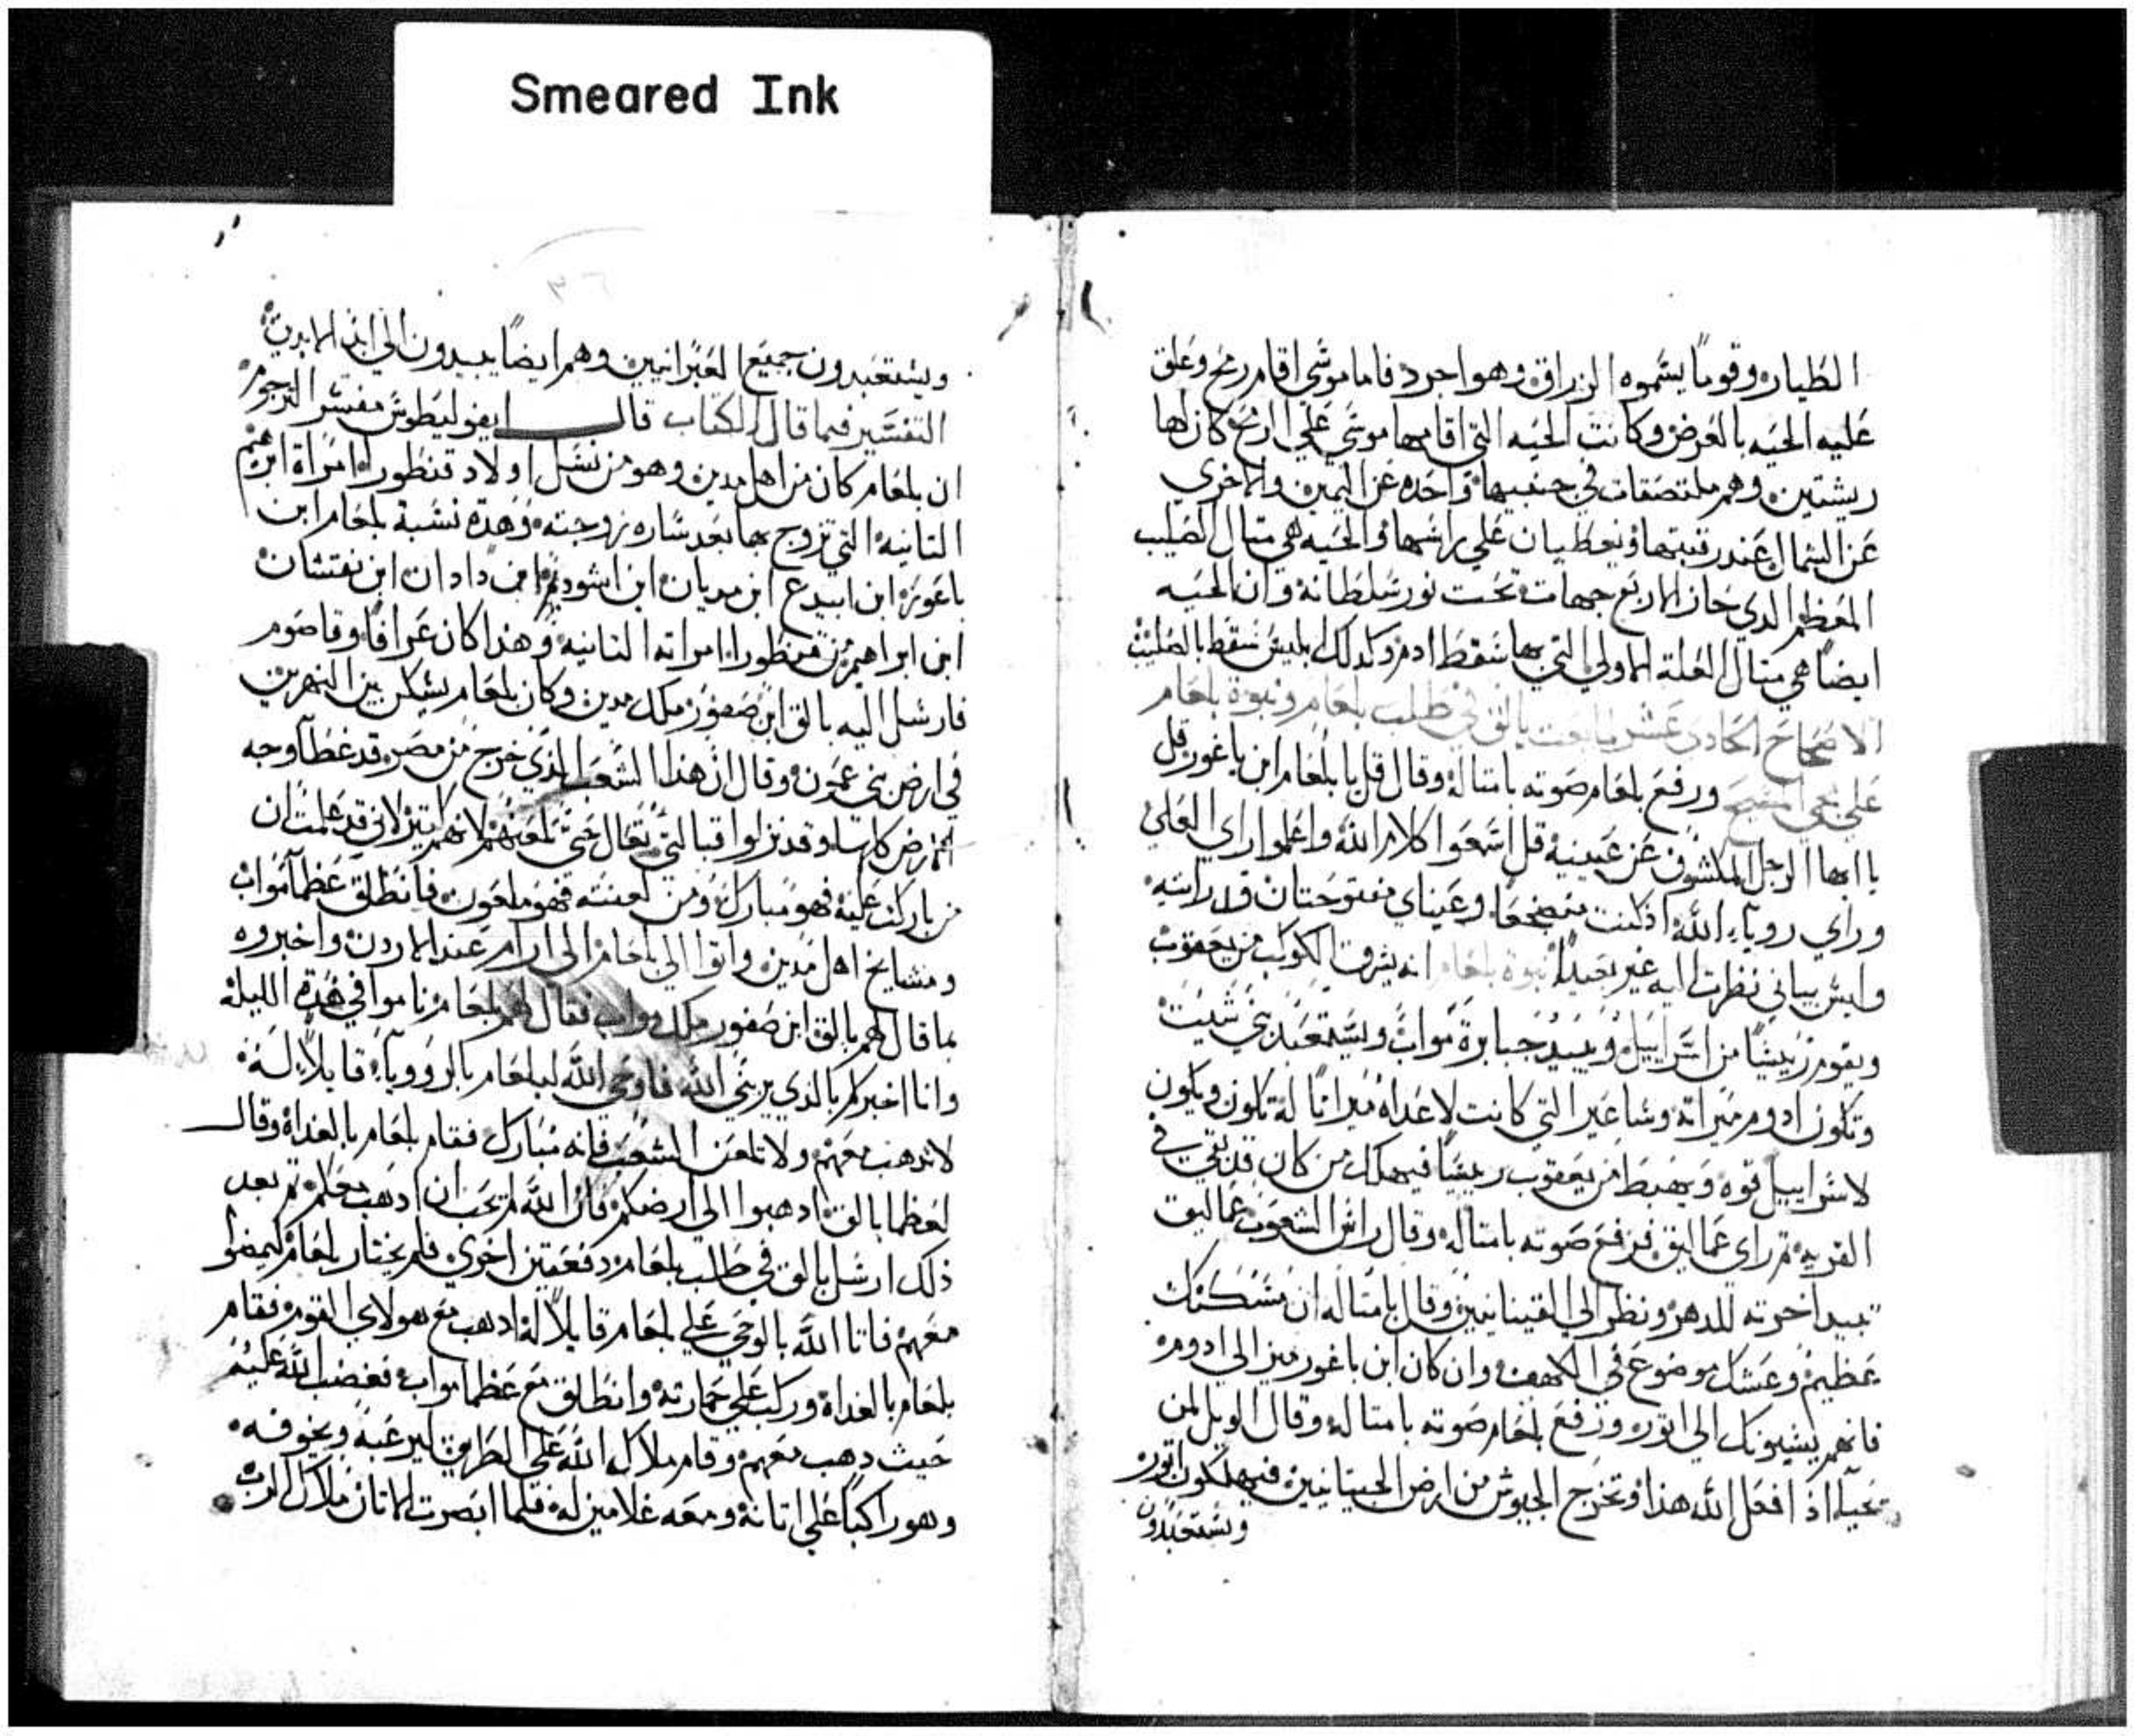 Smeared Ink
الطياره وقوماً يسموه الزراق وهو اجرد فاما موسى اقام رمح وعلق
عليه الحيه بالعرض وكانت الحيه التي اقامها موسى على الرمح كان لها
ريشتين وهم ملتصقات في جنبيها واحده عن اليمين والاخري
عن الشمال عند رقبتها ويعطيان على راسها والحيه هي متال الصليب
المعظم الدي حاز الاربع جهات تحت نور سلطانه وان الحيه
ايضا هي متال العله الاولي التي بها سقط ادم وكدلك ابليس سقط بالصليب
الاصحاح الحادي عشر بالق في طلب بلعام ونبوة بلعام
على مجي المسيح ورفع بلعام صوته بامتاله وقال قل يا بلعام ابن باعور قل
يا ايها الرجل المكشوف عن عينيه قل اسمعوا كلام الله واعلموا راي العلي
وراي روياء الله اذ كنت مضجعا وعيناي مفتوحتان قد رايته
وايش بياني نظرت اليه غير بعيداً نبوة بلعام انه يشرق الكوكب من يعقوب
ويقوم رييساً من اسراييل ويبيد جبابرة مواب ويستعبد بني شيت
وتكون ادوم ميراته وساعير التي كانت لاعداه ميراتا له تكون ويكون
لاسراييل قوه ويهبط من يعقوب رييساً فيهلك من كان قد بقي في
القريه تم راي عماليق فرفع صوته بامتاله وقال راس الشعوب عماليق
تبيد اخرته للدهر ونظر الي القينانيين وقال بامتاله ان مسكنك
عظيم وعشك موضوع في الكهف وان كان ابن باعور ميز الي ادوم
فانهم يسبونك الي اتور ورفع بلعام صوته بامتاله وقال الويل لمن
يحيا اذ افعل الله هذا وتخرج الجيوش من ارض الجيتانيين فيهلكون اتور
ويستعبدون
٣٦
ويستعبدون جميع العبرانيين وهم ايضاً يبيدون الي ابد الابدين
التفسير فيما قال الكتاب قال ايفوليطوس مفسر الترجوم
ان بلعام كان من اهل مدين وهو من نسل اولاد قنطورا امراة ابرهيم
التانيه التي تزوج بها بعد ساره زوجته وهده نسبة بلعام ابن
باعور ابن ابيدع ابن مديان ابن اشوديم ابن دادان ابن نفتشان
ابن ابراهيم من قنطورا امراته التانيه وهذا كان عرافا وقاصوم
فارسل اليه بالق ابن صفور ملك مدين وكان بلعام يسكن بين النهرين
في ارض بني عمون وقال ان هذا الشعب الذي خرج من مصر قد غطا وجه
الارض كلها وقد نزلوا قبالتي تعال حتى تلعنهم لانهم كتير لاني قد علمت ان
من باركت عليه فهو مبارك ومن لعنته فهو ملعون فانطلق عظما مواب
ومشايخ اهل مدين واتوا الي بلعام الي ارام عند الاردن واخبروه
بما قال لهم بالق ابن صفور ملك مواب فقال لهم بلعام ناموا في هده الليله
وانا اخبركم بالذي يريني الله فاوحي الله لبلعام بالروياء قايلاً له
لا تدهب معهم ولا تلعن الشعب فانه مبارك فقام بلعام بالغداة وقال
لعظما بالق ادهبوا الي ارضكم فان الله لم يحب ان ادهب معكم تم بعد
ذلك ارسل بالق في طلب بلعام دفعتين اخري فلم يختار بلعام ليمضوا
معهم فاتا الله بالوحي على بلعام قايلاً له ادهب مع هولاي القوم فقام
بلعام بالغداة وركب على حمارته وانطلق مع عظما مواب فغضب الله عليه
حيث دهب معهم وقام ملاك الله على الطريق ليرعبه ويخوفه
وهو راكباً على اتانه ومعه غلامين له فلما ابصرت الاتان ملاك الرب